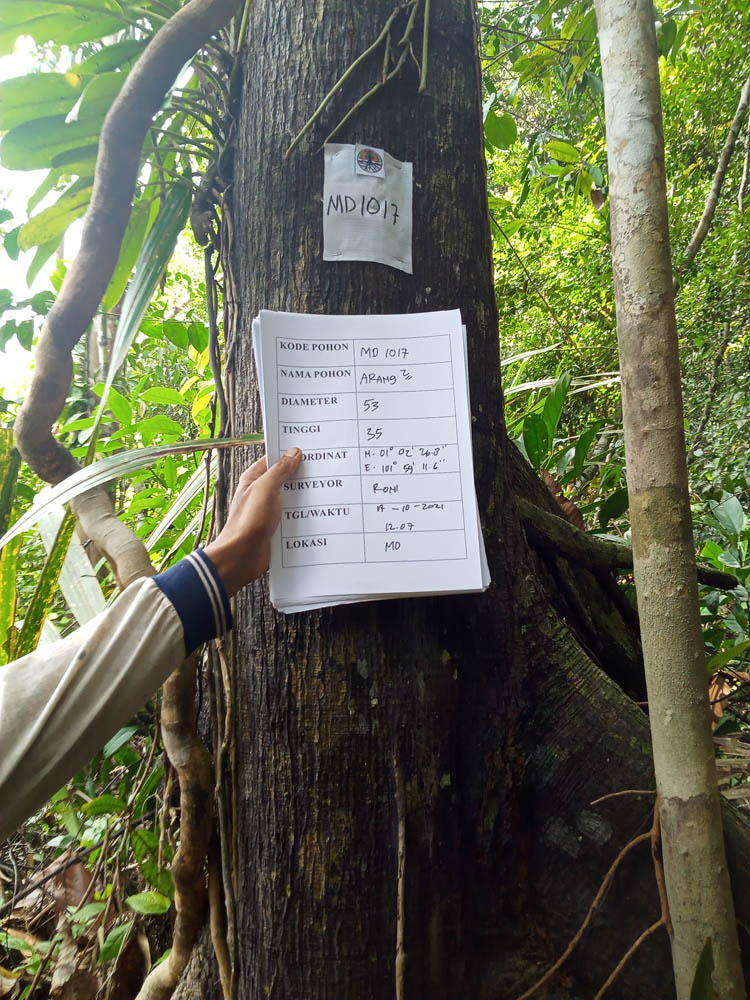 MD1017
KODE POHON MD 1017
NAMA POHON ARANG2
DIAMETER 53
TINGGI 35
OORDINAT N. 01° 02' 26.8"
E. 101° 59' 11.6"
SURVEYOR RONI
TGL/WAKTU - 10 - 2021
12.07
LOKASI MD